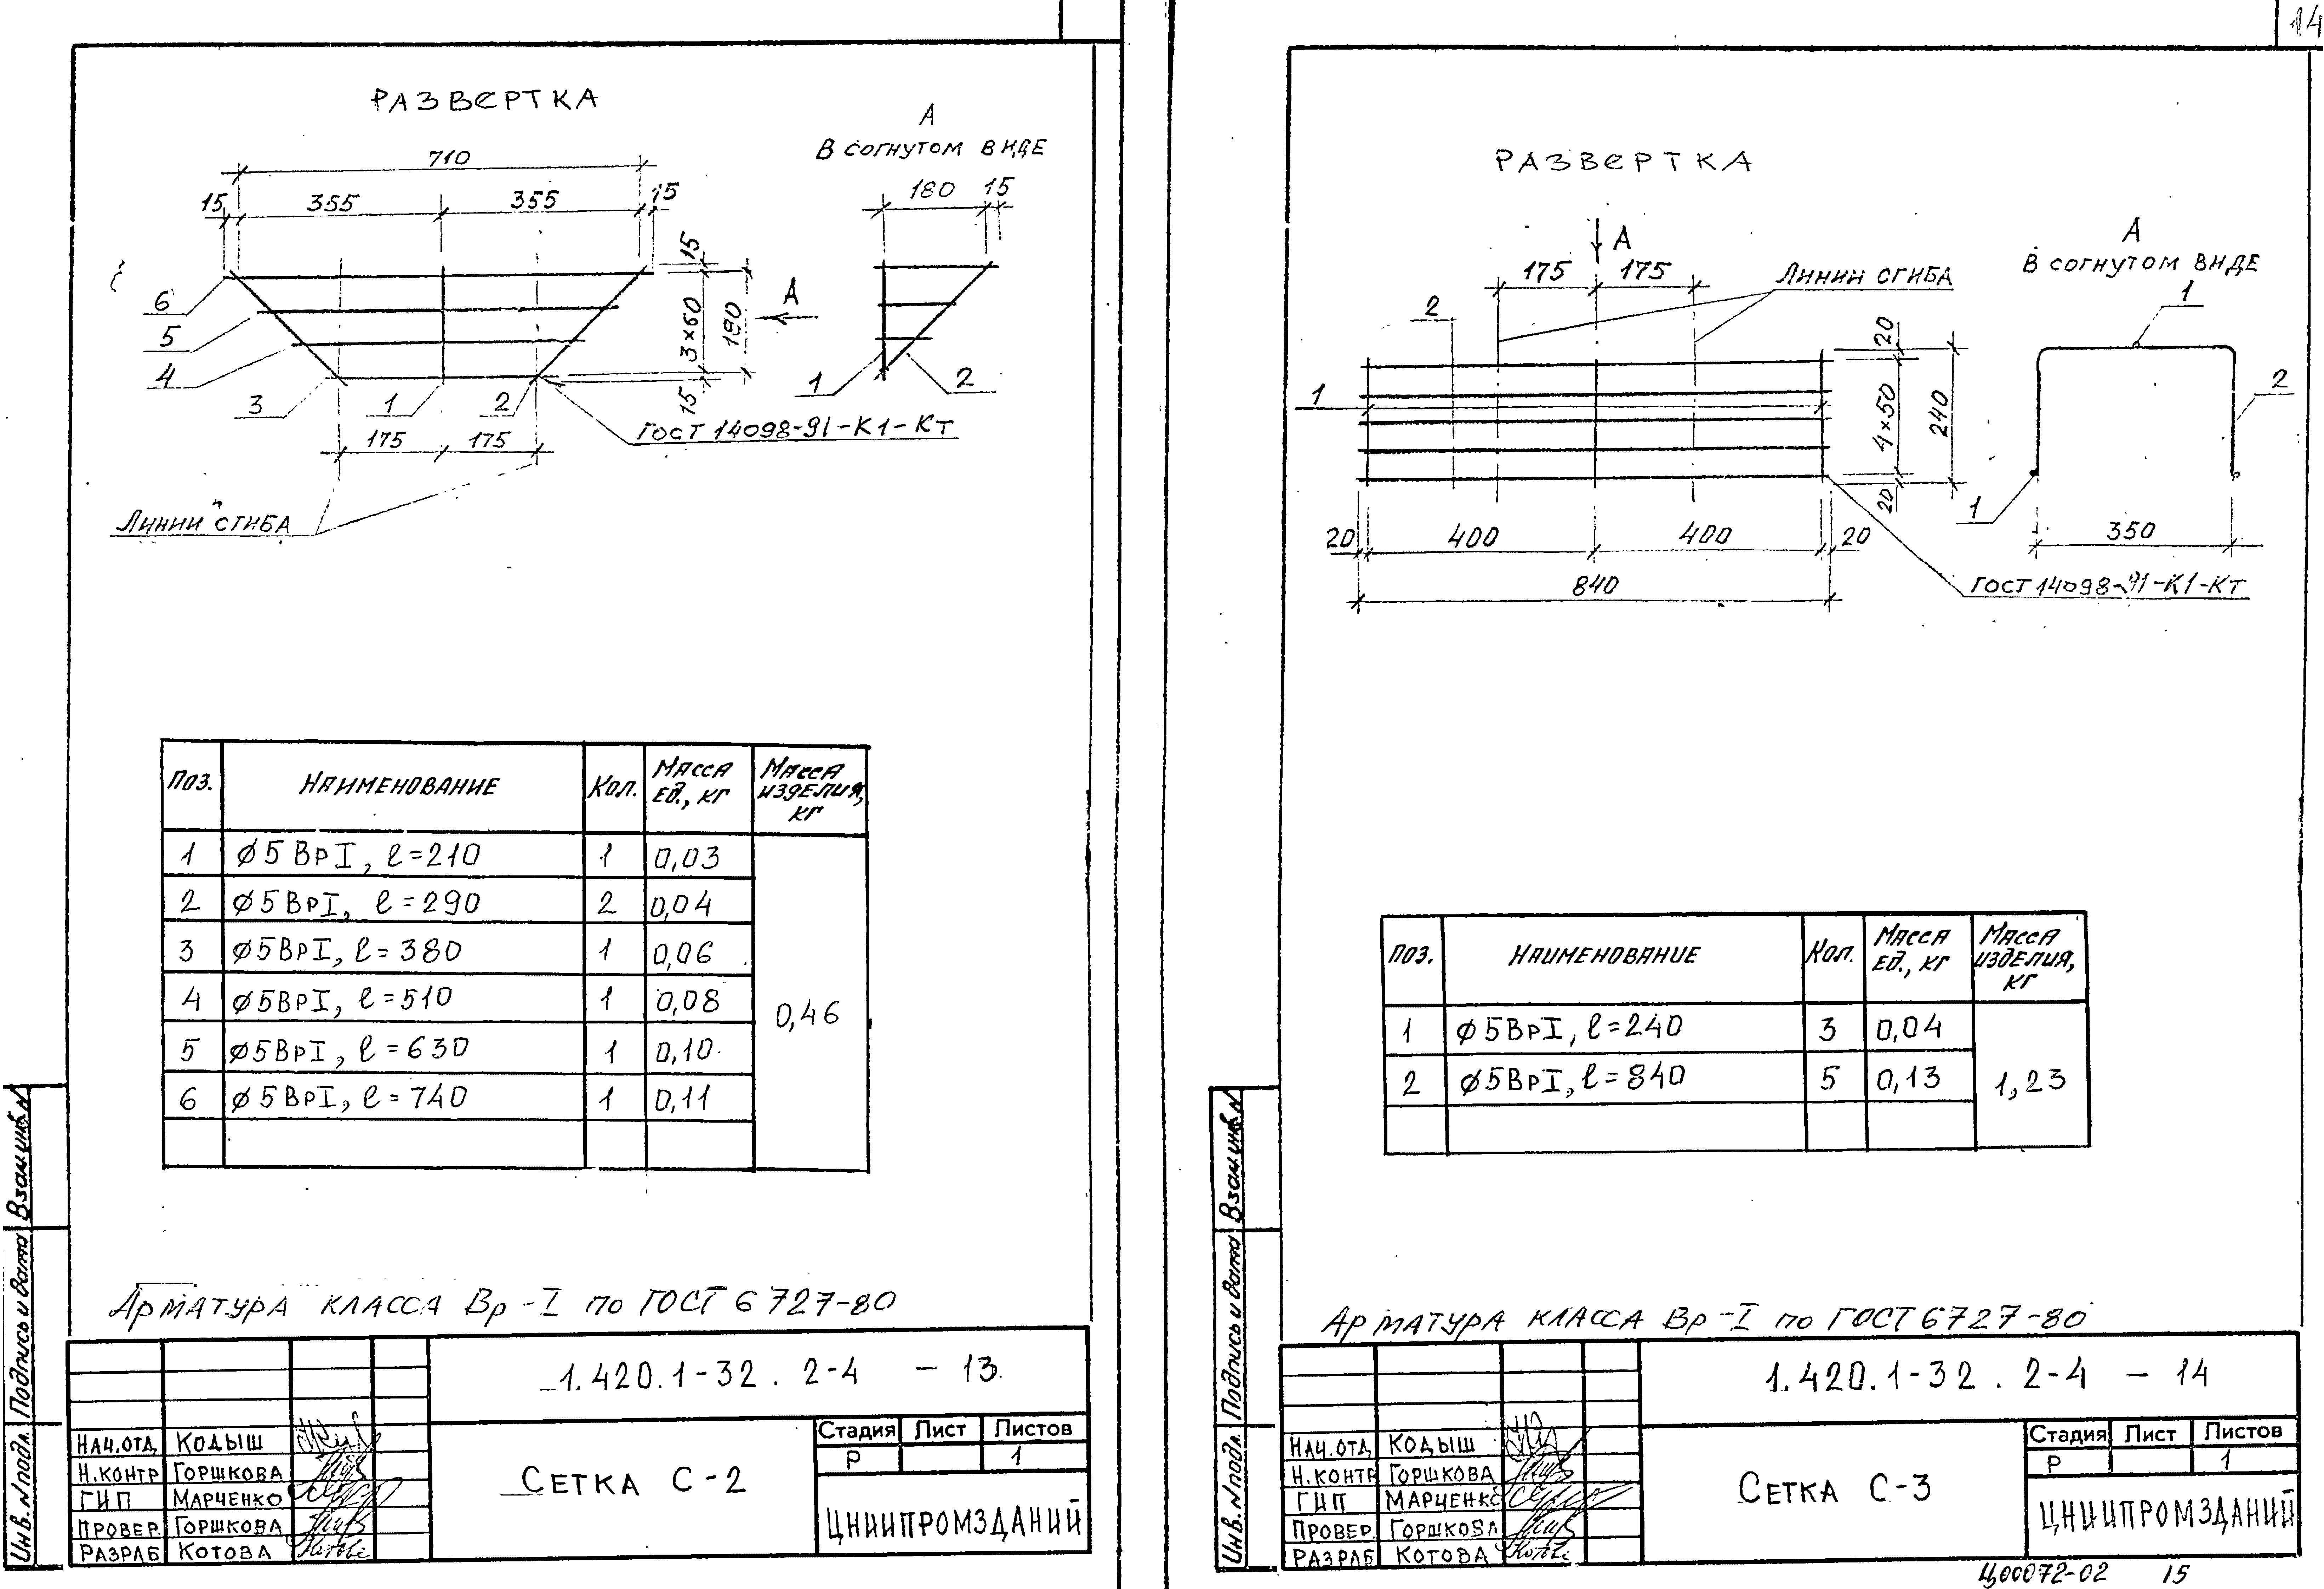 РАЗВЕРТКА
А
В СОГНУТОМ ВИДЕ
710
15 355 355 15
180 15
15
3×60
180
15
А
6
5
4
3
1
2
1
2
175 175
ГОСТ 14098-91-К1-Кт
ЛИНИИ СГИБА
ПОЗ. НАИМЕНОВАНИЕ КОЛ. МАССА ЕД., КГ МАССА ИЗДЕЛИЯ, КГ
1 ∅5ВрI, ℓ=210 1 0,03
2 ∅5ВрI, ℓ=290 2 0,04
3 ∅5ВрI, ℓ=380 1 0,06
4 ∅5ВрI, ℓ=510 1 0,08
5 ∅5ВрI, ℓ=630 1 0,10
6 ∅5ВрI, ℓ=740 1 0,11
0,46
АРМАТУРА КЛАССА Вр-I по ГОСТ 6727-80
1.420.1-32.2-4 - 13
НАЧ.ОТД КОДЫШ
Н.КОНТР ГОРШКОВА
ГИП МАРЧЕНКО
ПРОВЕР. ГОРШКОВА
РАЗРАБ КОТОВА
СЕТКА С-2
Стадия Лист Листов
Р 1
ЦНИИПРОМЗДАНИЙ
Инв. N подл. Подпись и дата Взам.инв.N
14
РАЗВЕРТКА
А
175 175
ЛИНИИ СГИБА
2
1
20
4×50
240
20
20 400 400 20
840
ГОСТ 14098-91-К1-КТ
А
В СОГНУТОМ ВИДЕ
1
2
1
350
ПОЗ. НАИМЕНОВАНИЕ КОЛ. МАССА ЕД., КГ МАССА ИЗДЕЛИЯ, КГ
1 ∅5ВрI, ℓ=240 3 0,04
2 ∅5ВрI, ℓ=840 5 0,13
1,23
АРМАТУРА КЛАССА Вр-I по ГОСТ 6727-80
1.420.1-32.2-4 - 14
НАЧ.ОТД КОДЫШ
Н.КОНТР ГОРШКОВА
ГИП МАРЧЕНКО
ПРОВЕР. ГОРШКОВА
РАЗРАБ КОТОВА
СЕТКА С-3
Стадия Лист Листов
Р 1
ЦНИИПРОМЗДАНИЙ
Инв. N подл. Подпись и дата Взам.инв.N
Ц00072-02 15